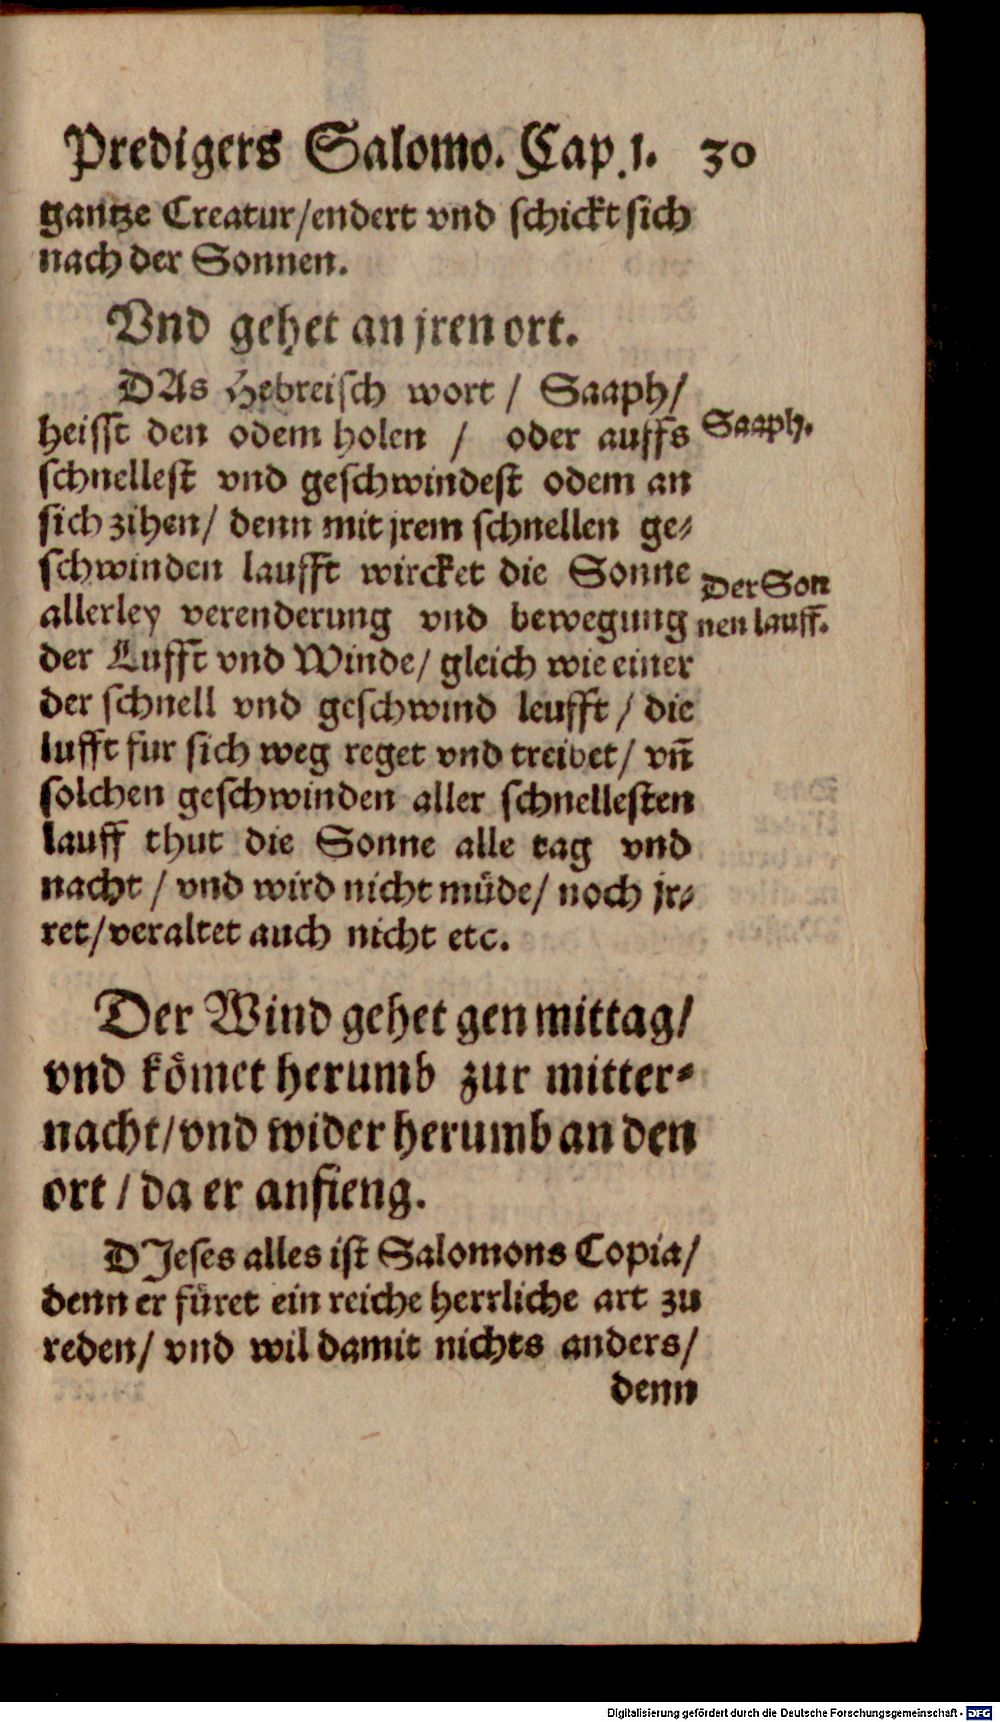 Predigers Salomo. Cap. 1. 30
gantze Creatur/endert vnd schickt sich
nach der Sonnen.
Vnd gehet an jren ort.
DAs Hebreisch wort / Saaph/
heisst den odem holen / oder auffs
Saaph.
schnellest vnd geschwindest odem an
sich zihen/ denn mit jrem schnellen ge-
schwinden laufft wircket die Sonne
Der Son
allerley verenderung vnd bewegung
nen lauff.
der Lufft vnd Winde/ gleich wie einer
der schnell vnd geschwind leufft / die
lufft fur sich weg reget vnd treibet/ vñ
solchen geschwinden aller schnellesten
lauff thut die Sonne alle tag vnd
nacht / vnd wird nicht müde/ noch jr-
ret/veraltet auch nicht etc.
Der Wind gehet gen mittag/
vnd kömet herumb zur mitter-
nacht/vnd wider herumb an den
ort / da er anfieng.
DJeses alles ist Salomons Copia/
denn er füret ein reiche herrliche art zu
reden/ vnd wil damit nichts anders/
denn
Digitalisierung gefördert durch die Deutsche Forschungsgemeinschaft - DFG